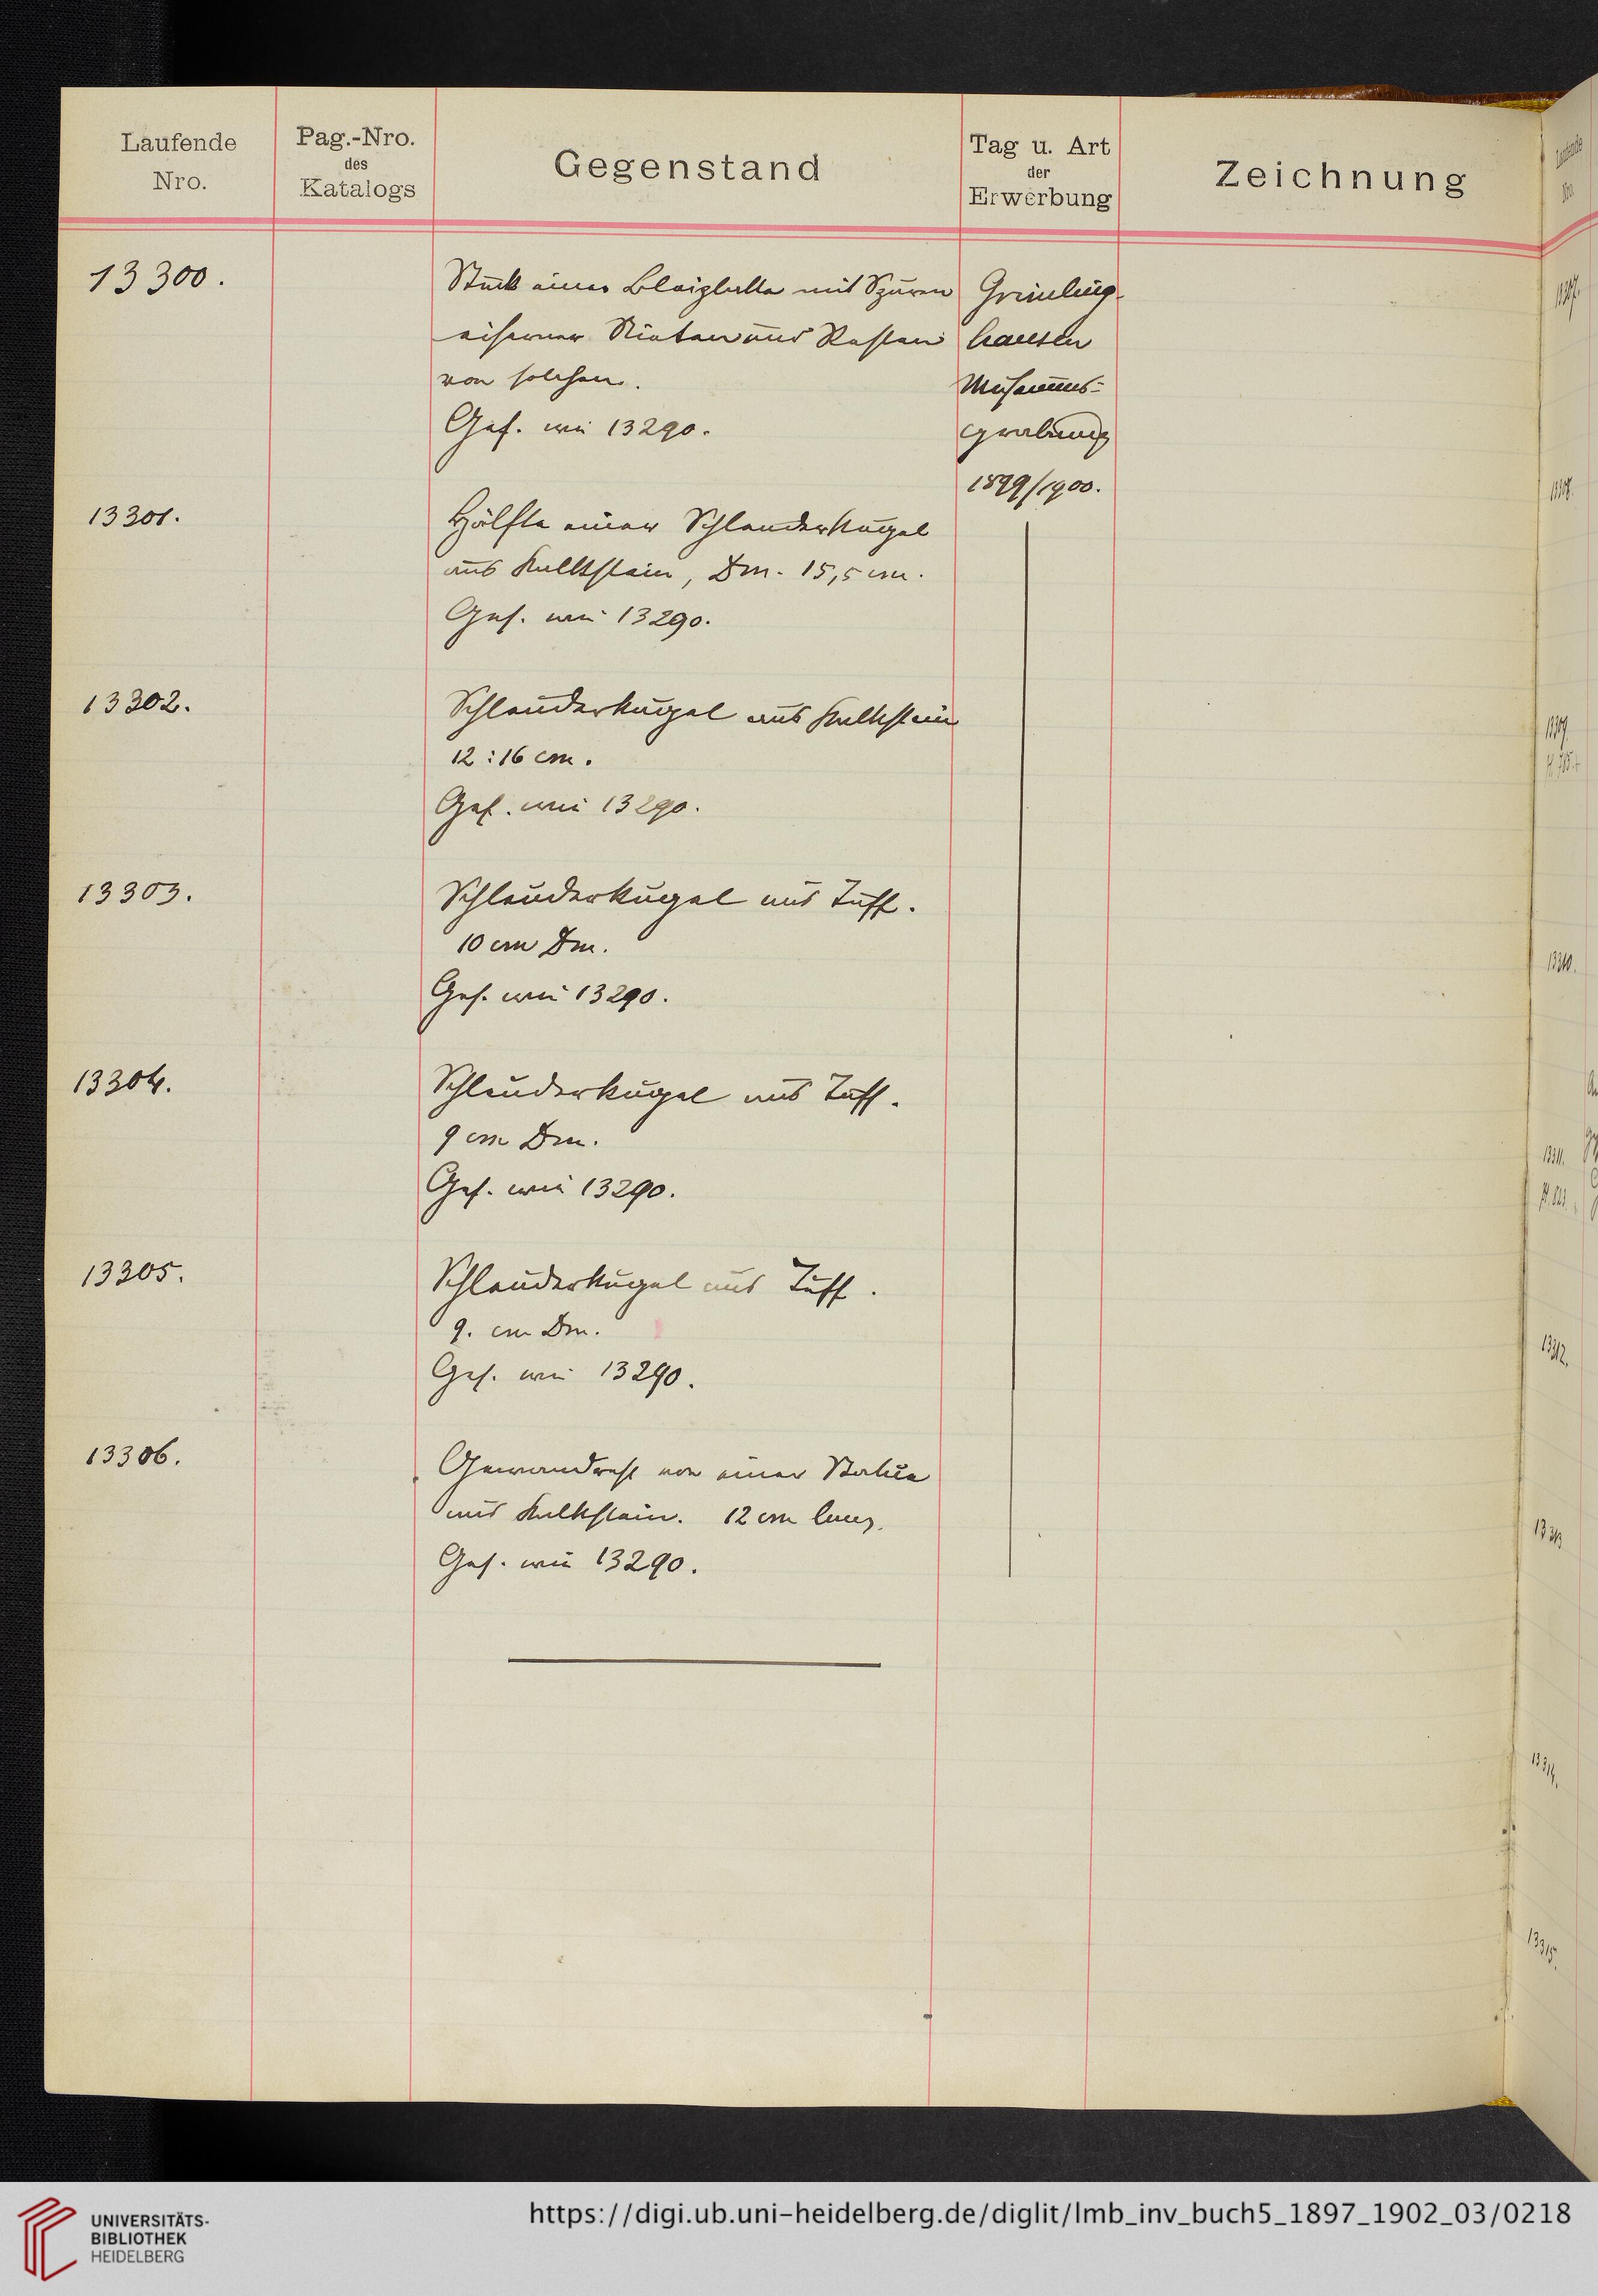 Laufende
Nro.
Pag.-Nro.
des
Katalogs
Gegenstand
Tag u. Art
der
Erwerbung
Zeichnung
13300.
Stück einer Bleiplatte mit Spuren
eiserner Nieten und Resten
von solchen.
Gef. wie 13290.
Grimling-
hausen
Museums-
grabung
1899/1900.
13301.
Hälfte einer Schleuderkugel
aus Kalkstein, Dm. 15,5 cm.
Gef. wie 13290.
13302.
Schleuderkugel aus Kalkstein
12 : 16 cm.
Gef. wie 13290.
13303.
Schleuderkugel aus Tuff.
10 cm Dm.
Gef. wie 13290.
13304.
Schleuderkugel aus Tuff.
9 cm Dm.
Gef. wie 13290.
13305.
Schleuderkugel aus Tuff.
9. cm Dm.
Gef. wie 13290.
13306.
Gewandrest von einer Statue
aus Kalkstein. 12 cm lang.
Gef. wie 13290.
13310.
13311.
13312.
13313
13314.
13315.
UNIVERSITÄTS-
BIBLIOTHEK
HEIDELBERG
https://digi.ub.uni-heidelberg.de/diglit/lmb_inv_buch5_1897_1902_03/0218